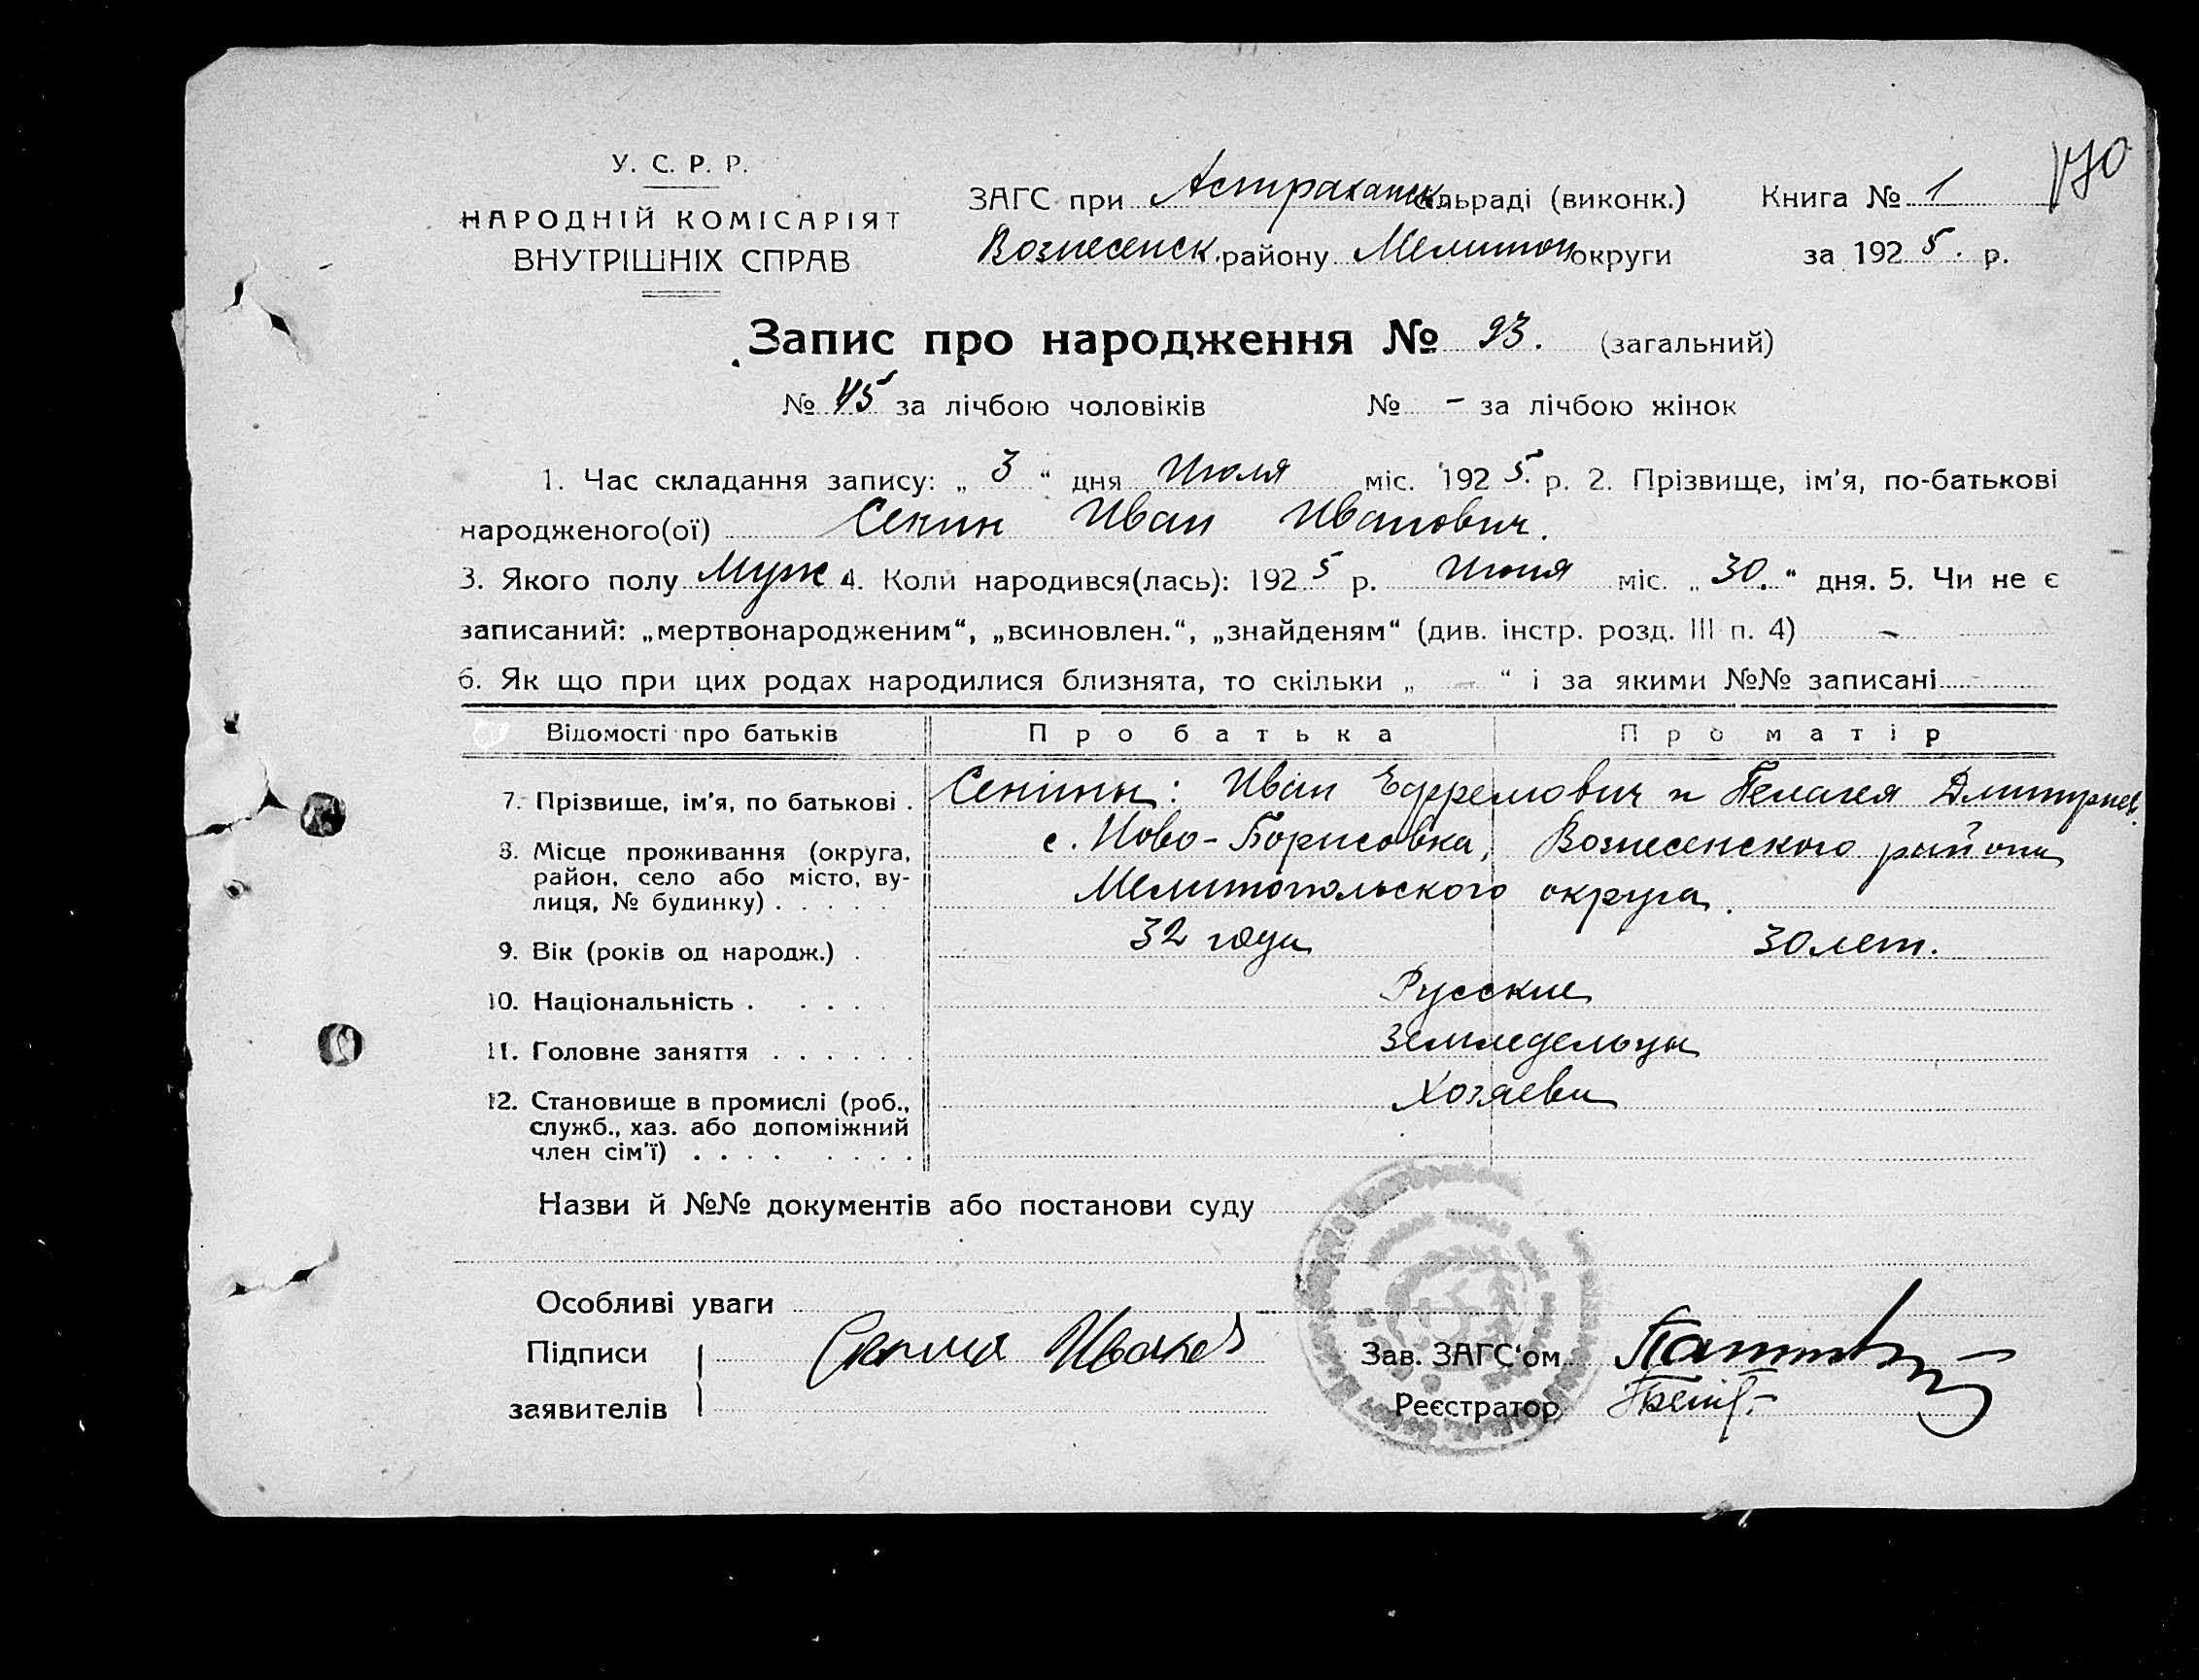 170
У. С. Р. Р.
НАРОДНІЙ КОМІСАРІЯТ
ВНУТРІШНІХ СПРАВ
ЗАГС при Астраханск. сільраді (виконк.) Книга № 1
Вознесенск. району Мелитоп округи за 1925. р.
Запис про народження № 93. (загальний)
№ 45 за лічбою чоловіків № - за лічбою жінок
1. Час складання запису: „ 3 “ дня Июля міс. 1925. р. 2. Прізвище, ім'я, по-батькові
народженого(ої) Секин Иван Иванович.
3. Якого полу Муж 4. Коли народився(лась): 1925 р. Июня міс. „ 30. “ дня. 5. Чи не є
записаний: „мертвонародженим“, „всиновлен.“, „знайденям“ (див. інстр. розд. III п. 4) -
6. Як що при цих родах народилися близнята, то скільки „ - “ і за якими №№ записані -
Відомості про батьків Про батька Про матір
7. Прізвище, ім'я, по батькові . Секины: Иван Ефремович и Пелагея Дмитриев.
8. Місце проживання (округа, с. Ново-Борисовка, Вознесенского района
район, село або місто, ву-
лиця, № будинку) . . . . . Мелитопольского округа.
9. Вік (років од народж.) . 32 года 30 лет.
10. Національність . . . . . Русские
11. Головне заняття . . . . . . Земледельцы
12. Становище в промислі (роб., Хозяева
служб., хаз. або допоміжний
член сім'ї) . . . . . . . .
Назви й №№ документів або постанови суду
Особливі уваги
Підписи Иван Зав. ЗАГС'ом
заявителів Реєстратор